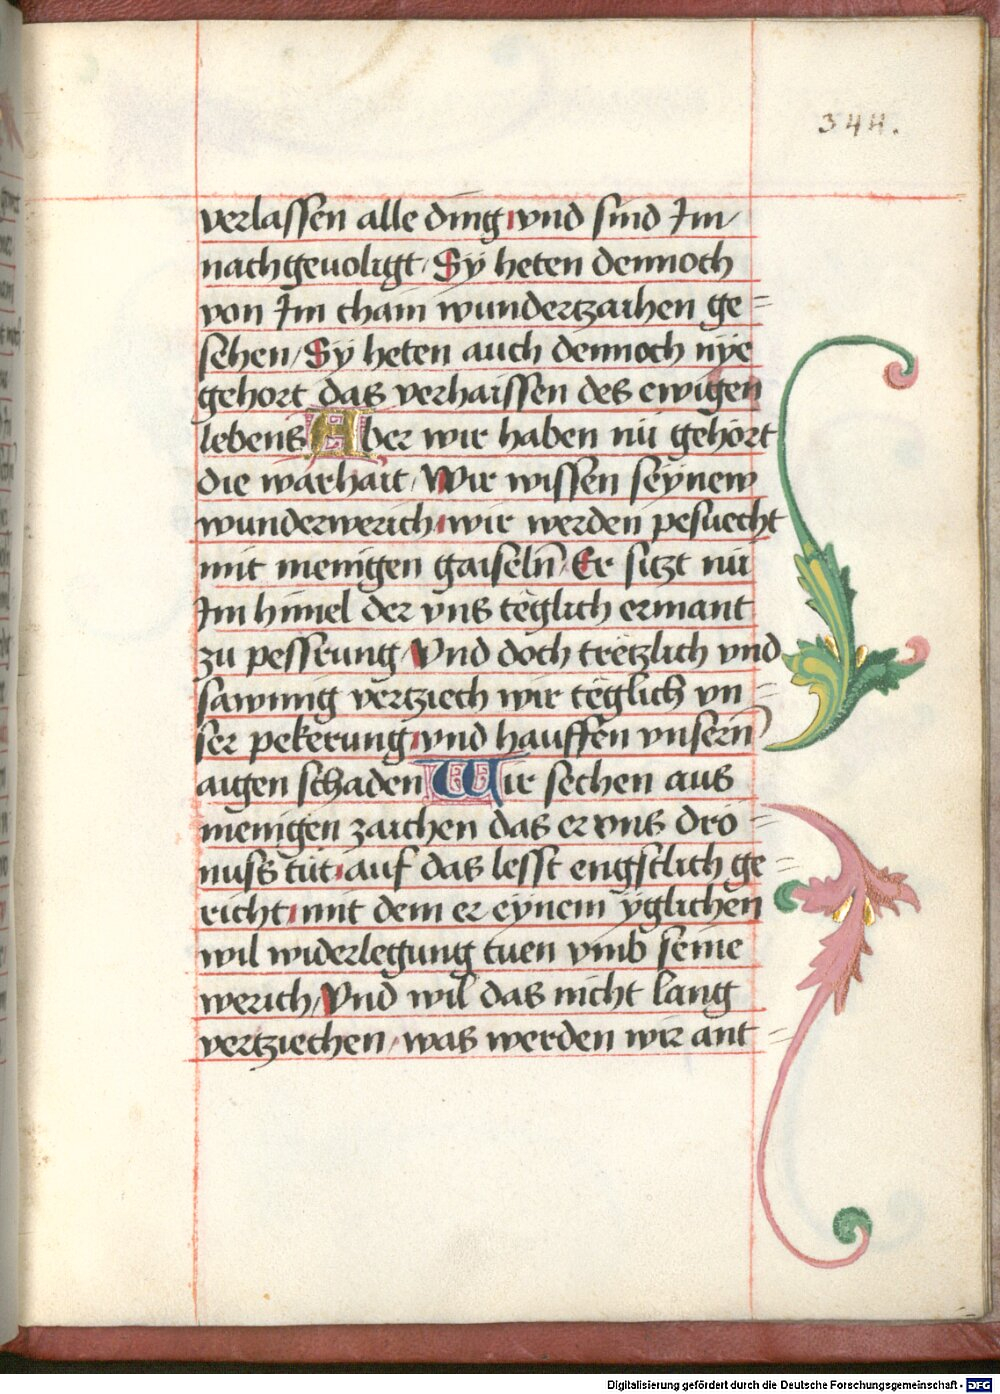 344.
verlassen alle ding, vnd sind Im
nachgeuolgt, Sÿ heten dennoch
von Im chain wundertzaichen ge=
sehen, Sÿ heten auch dennoch nÿe
gehort das verhaissen des ewigen
lebens Aber wir haben nu gehört
die warhait, Wir wissen seÿnew
wunderwerich, wir werden pesuecht
mit menigen gaiseln̄, Er sitzt nu
Im himel der vns teglich ermant
zu pessrung, Vnd doch tretzlich vnd
sawmig vertziech wir teglich vn=
ser pekerung, vnd hauffen vnsern̄
augen schaden Wir sechen aus
menigen zaichen das er vns dro=
nuss tut, auf das lesst engstlich ge=
richt, mit dem er eÿnem ÿglichen
wil widerlegung tuen vmb seine
werich, Vnd wil das nicht lang
vertziechen, was werden wir ant=
Digitalisierung gefördert durch die Deutsche Forschungsgemeinschaft - DFG